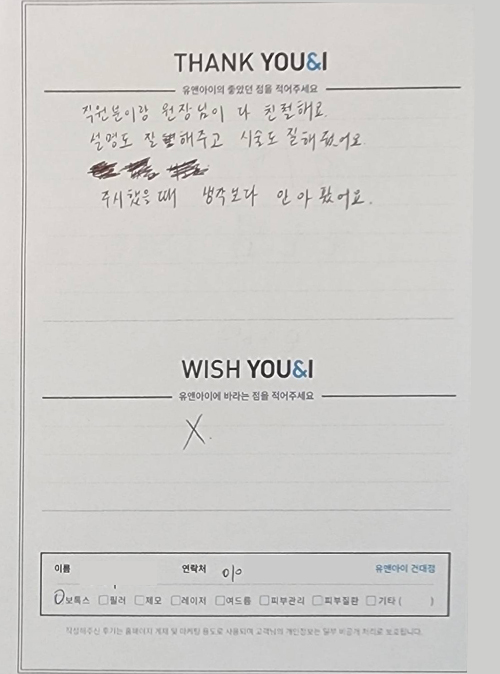 THANK YOU&I
유앤아이의 좋았던 점을 적어주세요
직원분이랑 원장님이 다 친절해요
설명도 잘 해주고 시술도 잘해줬어요.
주사했을때 생각보다 안 아팠어요.
WISH YOU&I
유앤아이에 바라는 점을 적어주세요
X.
이름 연락처 010 유앤아이 건대점
보톡스 필러 제모 레이저 여드름 피부관리 피부질환 기타 ( )
작성해주신 후기는 홈페이지 게재 및 마케팅 용도로 사용되며 고객님의 개인정보는 일부 비공개 처리로 보호됩니다.